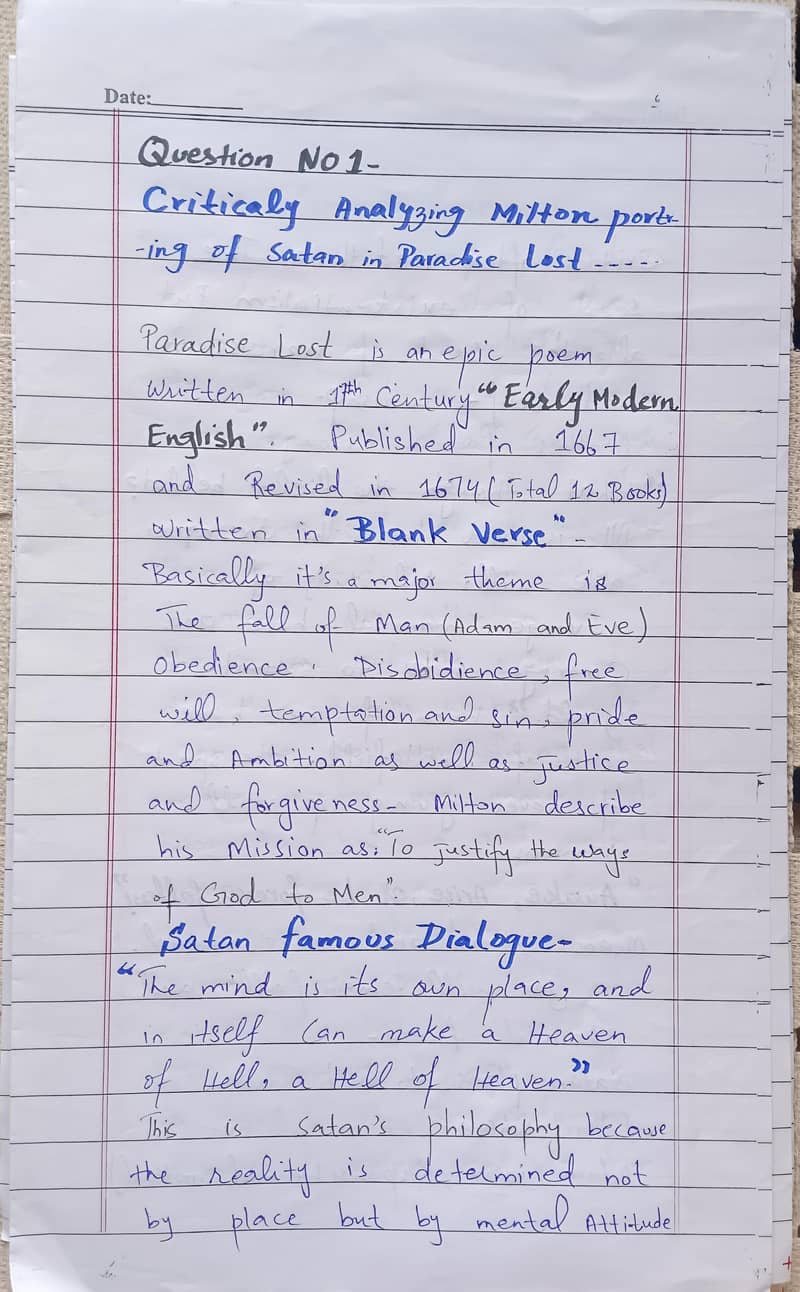 Date:
Question No 1-
Criticaly Analyzing Milton portr-
-ing of Satan in Paradise Lost -----
Paradise Lost is an epic poem
written in 17th Century "Early Modern
English". Published in 1667
and Revised in 1674 (Total 12 Books)
written in "Blank Verse" -
Basically it's a major theme is
The fall of Man (Adam and Eve)
Obedience, Disobidience, free
will, temptation and sin, pride
and Ambition as well as justice
and forgiveness- Milton describe
his Mission as: "To justify the ways
of God to Men".
Satan famous Dialogue-
"The mind is its own place, and
in itself Can make a Heaven
of Hell, a Hell of Heaven."
This is Satan's philosophy because
the reality is determined not
by place but by mental Attitude